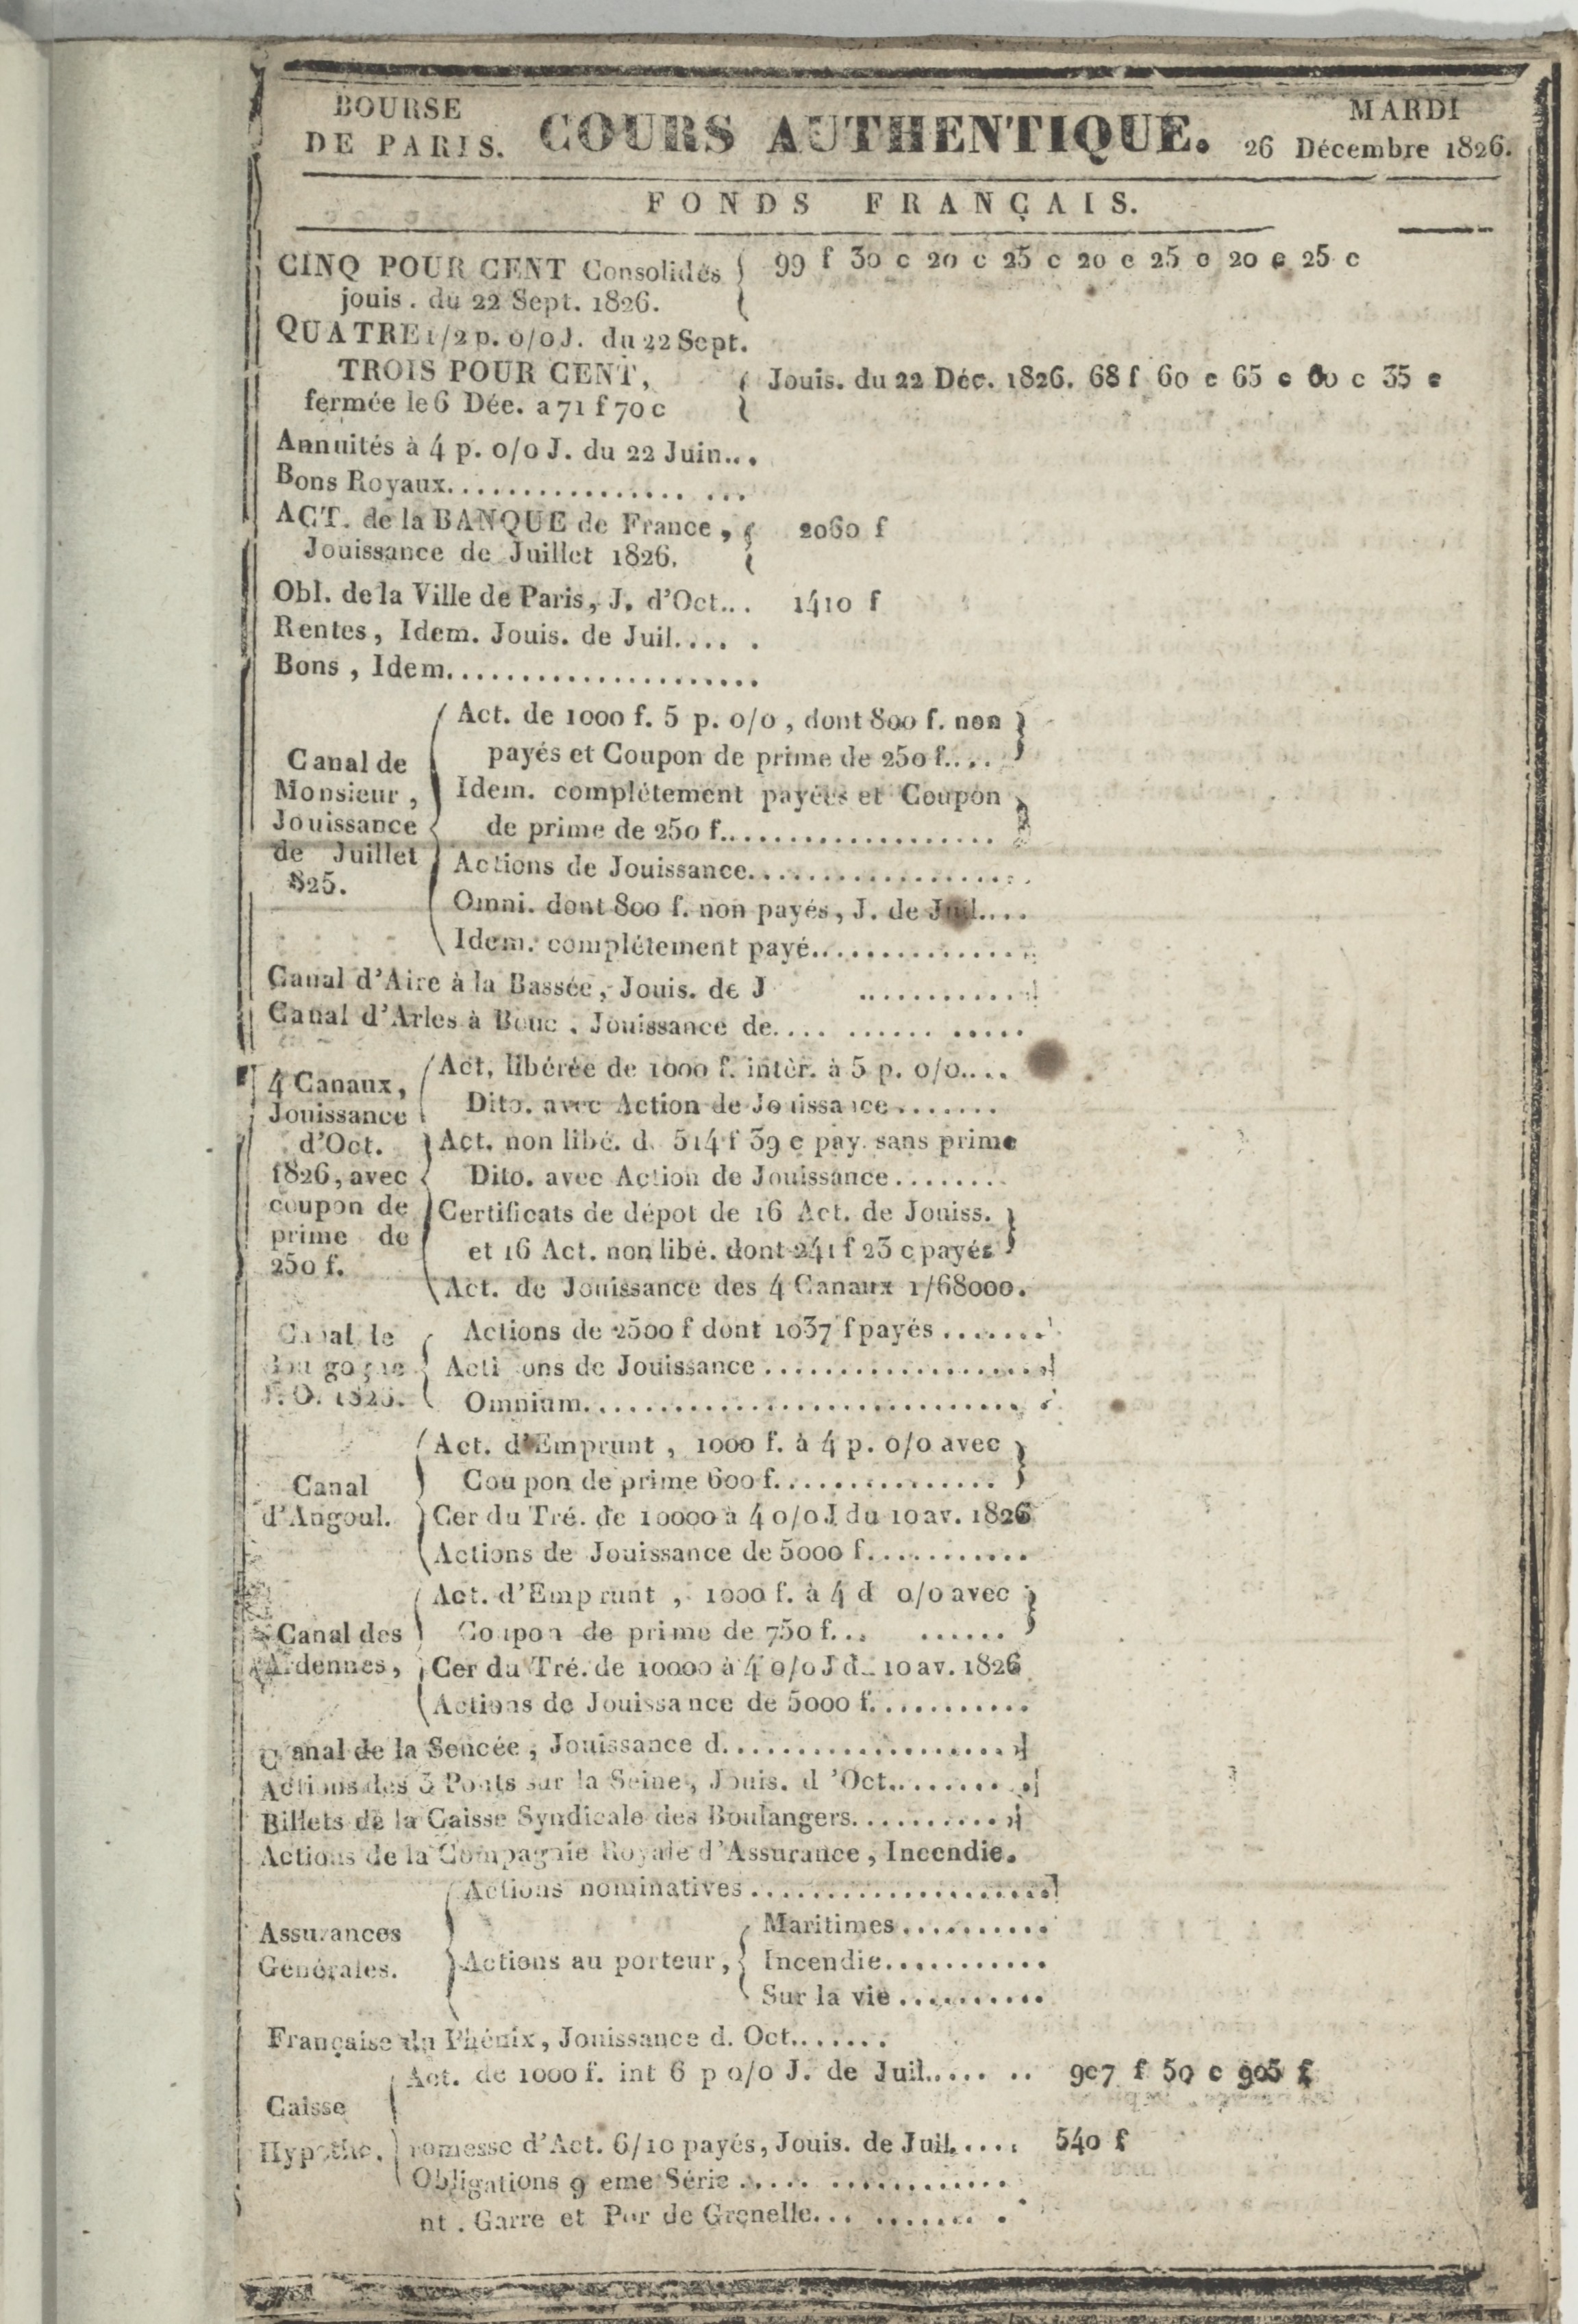 BOURSE
DE PARIS.
COURS AUTHENTIQUE.
MARDI
26 Décembre 1826.
FONDS FRANÇAIS.
CINQ POUR CENT Consolidés { 99 f 30 c 20 c 25 c 20 c 25 c 20 c 25 c
jouis. du 22 Sept. 1826.
QUATRE 1/2 p. o/o J. du 22 Sept.
TROIS POUR CENT, { Jouis. du 22 Déc. 1826. 68 f 60 c 65 c 60 c 35 c
fermée le 6 Dée. a 71 f 70 c
Annuités à 4 p. o/o J. du 22 Juin...
Bons Royaux...................
ACT. de la BANQUE de France, { 2060 f
Jouissance de Juillet 1826.
Obl. de la Ville de Paris, J. d'Oct... 1410 f
Rentes, Idem. Jouis. de Juil.....
Bons, Idem.....................
Canal de
Monsieur,
Jouissance
de Juillet
825.
Act. de 1000 f. 5 p. o/o, dont 800 f. non
payés et Coupon de prime de 250 f....
Idem. complétement payées et Coupon
de prime de 250 f...................
Actions de Jouissance...................
Omni. dont 800 f. non payés, J. de Juil....
Idem. complétement payé...............
Canal d'Aire à la Bassée, Jouis. de J ............
Canal d'Arles à Bouc. Jouissance de.... ...... .....
4 Canaux,
Jouissance
d'Oct.
1826, avec
coupon de
prime de
250 f.
Act, libérée de 1000 f. intèr. à 5 p. o/o....
Dito. avec Action de Jouissance.......
Act. non libé. d. 514 f 39 c pay. sans prime
Dito. avec Action de Jouissance........
Certificats de dépot de 16 Act. de Jouiss.
et 16 Act. non libé. dont 241 f 23 c payés
Act. de Jouissance des 4 Canaux 1/68000.
Canal de
Bourgogne
J. O. 1826.
Actions de 2500 f dont 1037 f payés.......
Acti ons de Jouissance...................
Omnium.............................
Canal
d'Angoul.
Act. d'Emprunt, 1000 f. à 4 p. o/o avec
Cou pon de prime 600 f...............
Cer du Tré. de 10000 à 4 o/o J du 10 av. 1826
Actions de Jouissance de 5000 f...........
Canal des
Ardennes,
Act. d'Emprunt, 1000 f. à 4 d o/o avec
Coupon de prime de 750 f... ......
Cer du Tré. de 10000 à 4 o/o J d. 10 av. 1826
Actions de Jouissance de 5000 f...........
Canal de la Sencée, Jouissance d...................
Actions des 3 Ponts sur la Seine, Jouis. d 'Oct.........
Billets de la Caisse Syndicale des Boulangers...........
Actions de la Compagnie Royale d'Assurance, Incendie.
Assurances
Générales.
Actions nominatives.....................
Actions au porteur,
Maritimes..........
Incendie...........
Sur la vie..........
Française du Phénix, Jouissance d. Oct.......
Caisse
Hypothe.
Act. de 1000 f. int 6 p o/o J. de Juil..... .. 907 f 50 c 905 f
romesse d'Act. 6/10 payés, Jouis. de Juil..... 540 f
Obligations 9 eme Série..... ............
nt. Garre et Por de Grenelle... ....... .